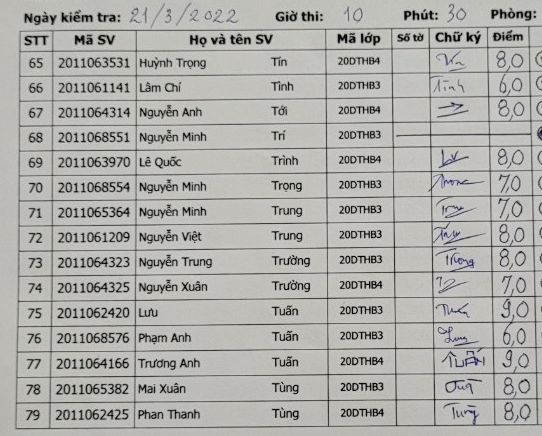 Ngày kiểm tra: 21/3/2022 Giờ thi: 10 Phút: 30 Phòng:
STT Mã SV Họ và tên SV Mã lớp Số tờ Chữ ký Điểm
65 2011063531 Huỳnh Trọng Tín 20DTHB4 8,0
66 2011061141 Lâm Chí Tình 20DTHB3 Tình 6,0
67 2011064314 Nguyễn Anh Tới 20DTHB4 8,0
68 2011068551 Nguyễn Minh Trí 20DTHB3
69 2011063970 Lê Quốc Trình 20DTHB4 8,0
70 2011068554 Nguyễn Minh Trọng 20DTHB3 7,0
71 2011065364 Nguyễn Minh Trung 20DTHB3 7,0
72 2011061209 Nguyễn Việt Trung 20DTHB3 8,0
73 2011064323 Nguyễn Trung Trường 20DTHB3 8,0
74 2011064325 Nguyễn Xuân Trường 20DTHB4 7,0
75 2011062420 Lưu Tuấn 20DTHB3 9,0
76 2011068576 Phạm Anh Tuấn 20DTHB3 6,0
77 2011064166 Trương Anh Tuấn 20DTHB4 TUẤN 9,0
78 2011065382 Mai Xuân Tùng 20DTHB3 8,0
79 2011062425 Phan Thanh Tùng 20DTHB4 Tùng 8,0